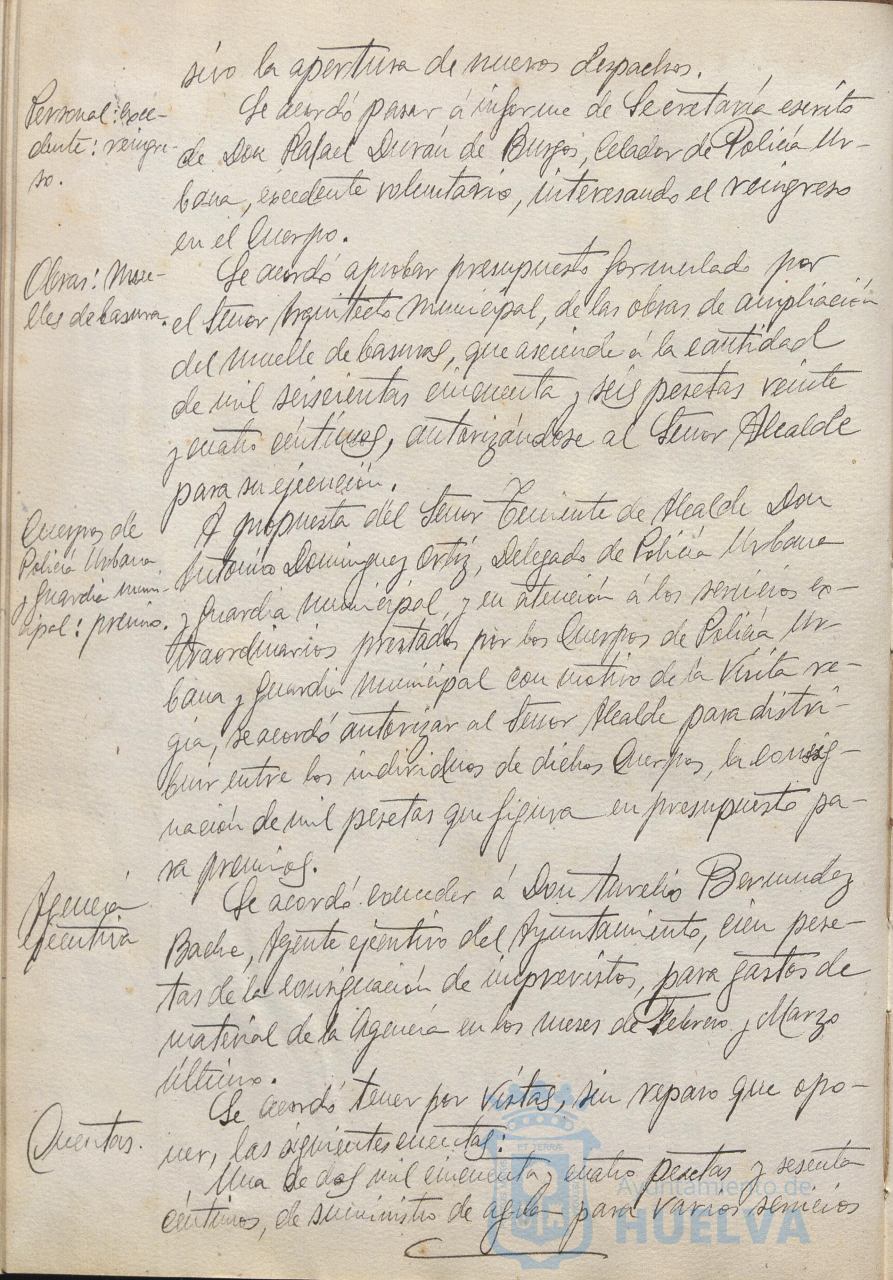 sivo la apertura de nuevos despachos.
Personal: exce-
dente: reingre-
so.
Se acordó pasar á informe de Secretaría escrito
de Don Rafael Durán de Burgos, Celador de Policía Ur-
bana, excedente voluntario, interesando el reingreso
en el Cuerpo.
Obras: Mue-
lles de basura.
Se acordó aprobar presupuesto formulado por
el Señor Arquitecto Municipal, de las obras de ampliación
del muelle de basuras, que asciende á la cantidad
de mil seiscientas cincuenta y seis pesetas veinte
y cuatro céntimos, autorizándose al Señor Alcalde
para su ejecución.
Cuerpos de
Policía Urbana
y Guardia muni-
cipal: premio.
A propuesta del Señor Teniente de Alcalde Don
Antonio Dominguez Ortiz, Delegado de Policía Urbana
y Guardia Municipal, y en atención á los servicios ex-
traordinarios prestados por los Cuerpos de Policía Ur-
bana y Guardia Municipal con motivo de la Visita re-
gia, se acordó autorizar al Señor Alcalde para distri-
buir entre los individuos de dichos Cuerpos, la consig-
nación de mil pesetas que figura en presupuesto pa-
ra premios.
Agencia
ejecutiva
Se acordó conceder á Don Aurelio Bermudez
Bache, Agente ejecutivo del Ayuntamiento, cien pese-
tas de la consignación de imprevistos, para gastos de
material de la Agencia en los meses de Febrero y Marzo
último.
Cuentas.
Se acordó tener por vistas, sin reparo que opo-
ner, las siguientes cuentas:
Una de dos mil cincuenta y cuatro pesetas y sesenta
céntimos, de suministro de agua para varios servicios
ET TERRÆ
Ayuntamiento de
HUELVA